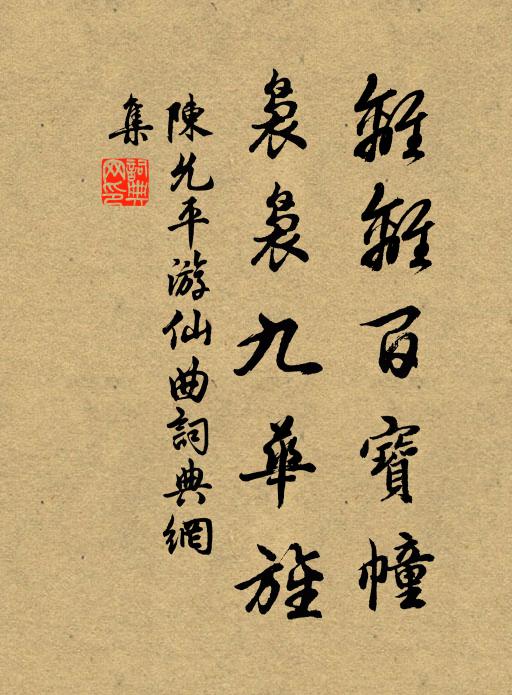 離離百寶幢
裊裊九華旌
陳允平游仙曲詞典網
集
詞典網印